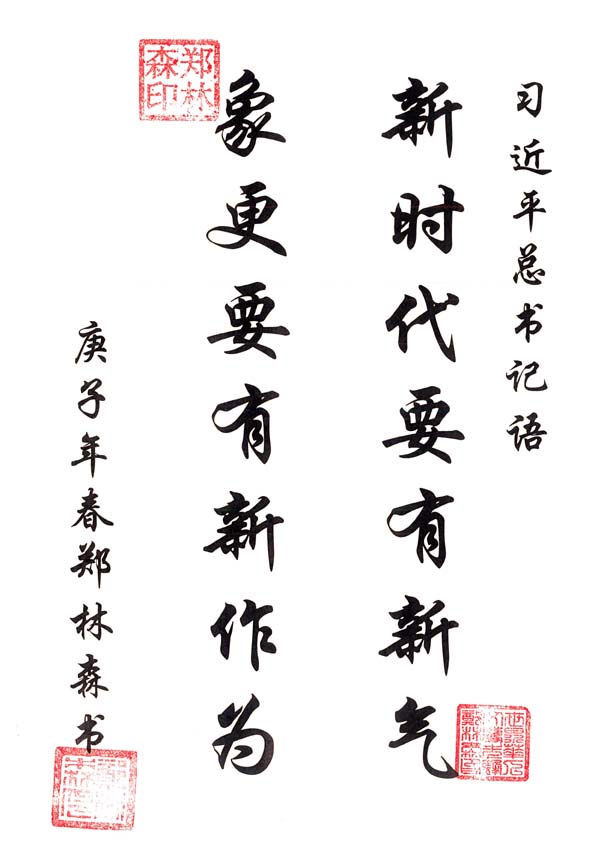 习近平总书记语
新时代要有新气
象更要有新作为
庚子年春郑林森书
郑林
森印